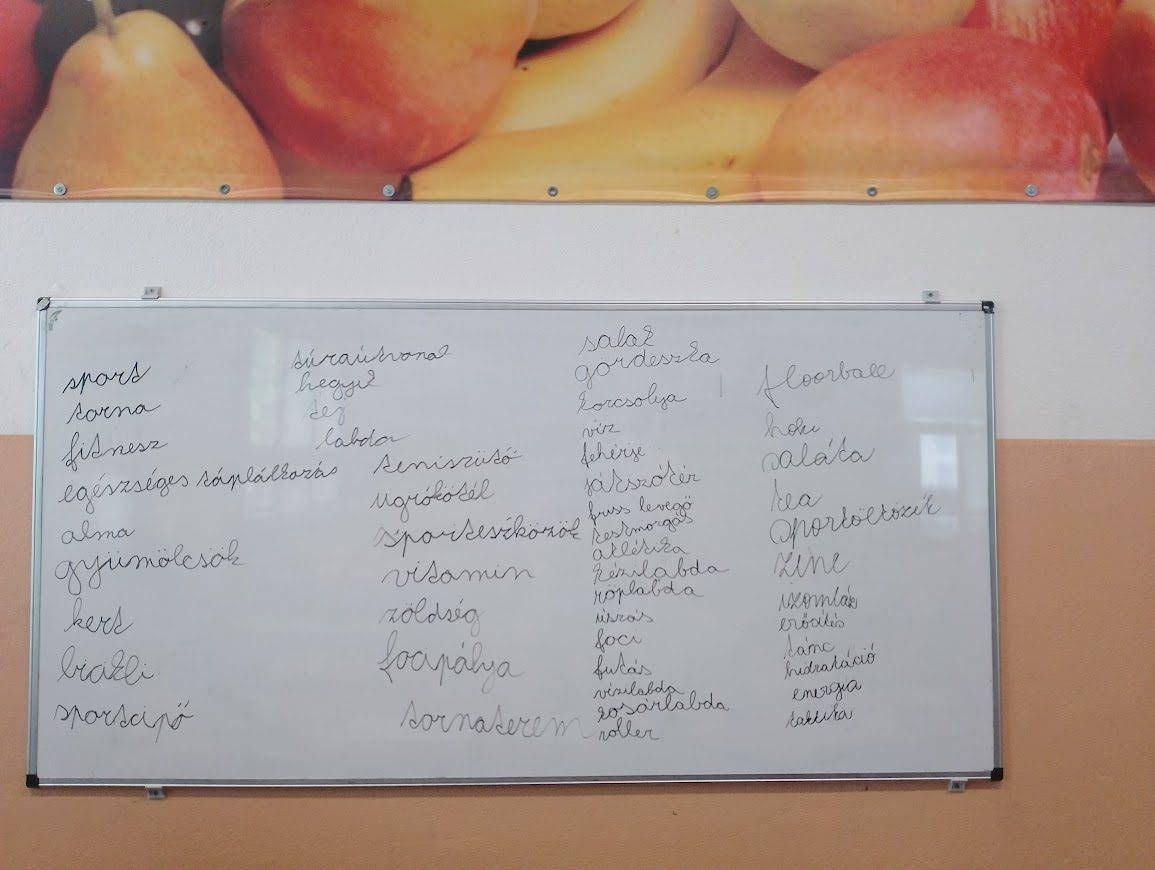 sport
torna
fitnesz
egészséges táplálkozás
alma
gyümölcsök
kert
bicikli
sportcipő
túraútvonal
hegyek
tej
labda
teniszütő
ugrókötél
sporteszközök
vitamin
zöldség
focipálya
tornaterem
salak
gördeszka
korcsolya
víz
fehérje
játszótér
friss levegő
testmozgás
atlétika
kézilabda
röplabda
úszás
foci
futás
vízilabda
kosárlabda
roller
floorball
hoki
saláta
tea
sportöltözék
zene
izomláz
erősítés
tánc
hidratáció
energia
taktika